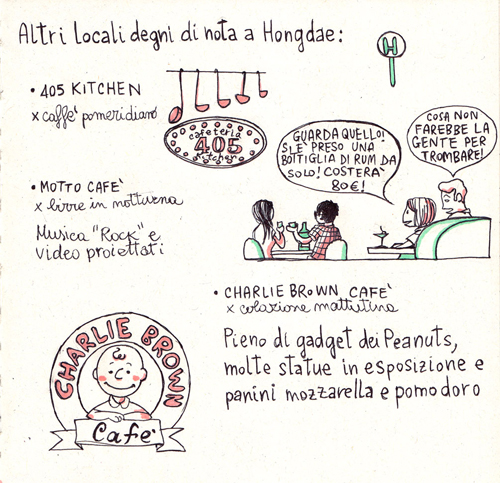 Altri Locali degni di nota a Hongdae:
H
• 405 KITCHEN
x caffè pomeridiano
cafeteria
405
kitchen
GUARDA QUELLO!
S'E' PRESO UNA
BOTTIGLIA DI RUM DA
SOLO! COSTERA'
80€!
COSA NON
FAREBBE LA
GENTE PER
TROMBARE!
• MOTTO CAFE'
x birre in notturna
Musica "Rock" e
video proiettati
• CHARLIE BRoWN CAFE'
x colazione mattutina
Pieno di gadget dei Peanuts,
molte statue in esposizione e
panini mozzarella e pomodoro
CHARLIE BROWN
Cafe'